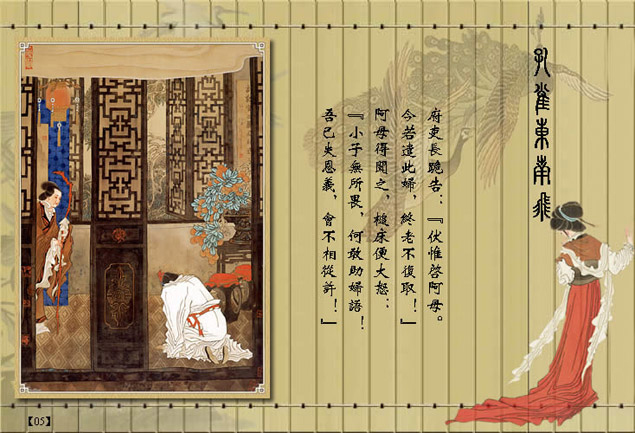 孔雀東南飛
府吏長跪告：『伏惟啓阿母。
今若遣此婦，終老不復取！』
阿母得聞之，槌床便大怒：
『小子無所畏，何敢助婦語！
吾已失恩義，會不相從許！』
【05】